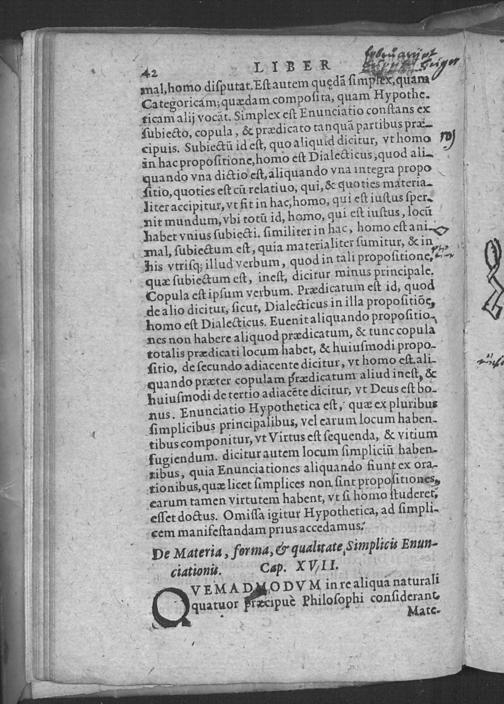 42 LIBER
mal, homo disputat. Est autem quędã simplex, quam
Categoricam; quædam composita, quam Hypothe-
ticam alij vocãt. Simplex est Enunciatio constans ex
subiecto, copula, & prædicato tanquã partibus præ-
cipuis. Subiectũ id est, quo aliquid dicitur, vt homo
in hac propositione, homo est Dialecticus, quod ali-
quando vna dictio est, aliquando vna integra propo
sitio, quoties est cũ relatiuo, qui, & quoties materia-
liter accipitur, vt fit in hac, homo, qui est iustus sper-
nit mundum, vbi totũ id, homo, qui est iustus, locũ
habet vnius subiecti. similiter in hac, homo est ani-
mal, subiectum est, quia materialiter sumitur, & in
his vtrisq; illud verbum, quod in tali propositione,
quæ subiectum est, inest, dicitur minus principale.
Copula est ipsum verbum. Prædicatum est id, quod
de alio dicitur, sicut, Dialecticus in illa propositiõe,
homo est Dialecticus. Euenit aliquando propositio-
nes non habere aliquod prædicatum, & tunc copula
totalis prædicati locum habet, & huiusmodi propo-
sitio, de secundo adiacente dicitur, vt homo est. ali-
quando præter copulam prædicatum aliud inest, &
huiusmodi de tertio adiacẽte dicitur, vt Deus est bo-
nus. Enunciatio Hypothetica est, quæ ex pluribus
simplicibus principalibus, vel earum locum haben-
tibus componitur, vt Virtus est sequenda, & vitium
fugiendum. dicitur autem locum simpliciũ haben-
tibus, quia Enunciationes aliquando fiunt ex ora-
tionibus, quæ licet simplices non sint propositiones,
earum tamen virtutem habent, vt si homo studeret,
esset doctus. Omissa igitur Hypothetica, ad simpli-
cem manifestandam prius accedamus.
De Materia, forma, & qualitate Simplicis Enun-
ciationis. Cap. XVII.
QVEMADMODVM in re aliqua naturali
quatuor præcipuè Philosophi considerant
Mate-